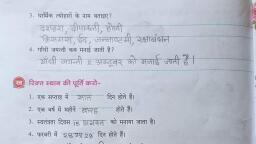 3. धार्मिक त्योहारों के नाम बताइए?
दशहरा, दीपावली, होली
क्रिसमस, ईद, जन्माष्टमी, रक्षाबंधन
4. गाँधी जयन्ती कब मनाई जाती है?
गाँधी जयन्ती 2 अक्टूबर को मनाई जाती है।
ख रिक्त स्थान की पूर्ति करो-
1. एक सप्ताह में सात दिन होते हैं।
2. एक वर्ष में महीने बारह होते हैं।
3. स्वतंत्रता दिवस 15 अगस्त को मनाया जाता है।
4. फरवरी में 28 या 29 दिन होते हैं।